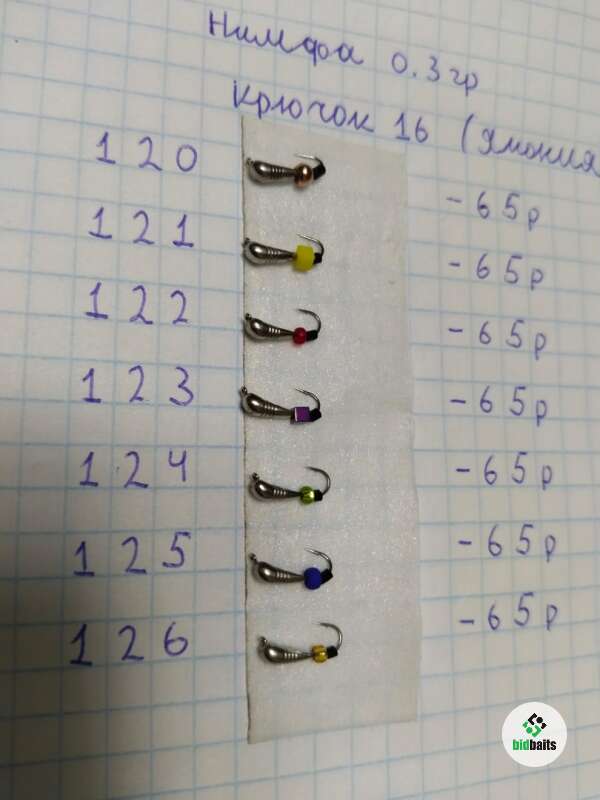 Нимфа 0.3гр
Крючок 16 (Япония
120 -65р
121 -65р
122 -65р
123 -65р
124 -65р
125 -65р
126 -65р
bidbaits